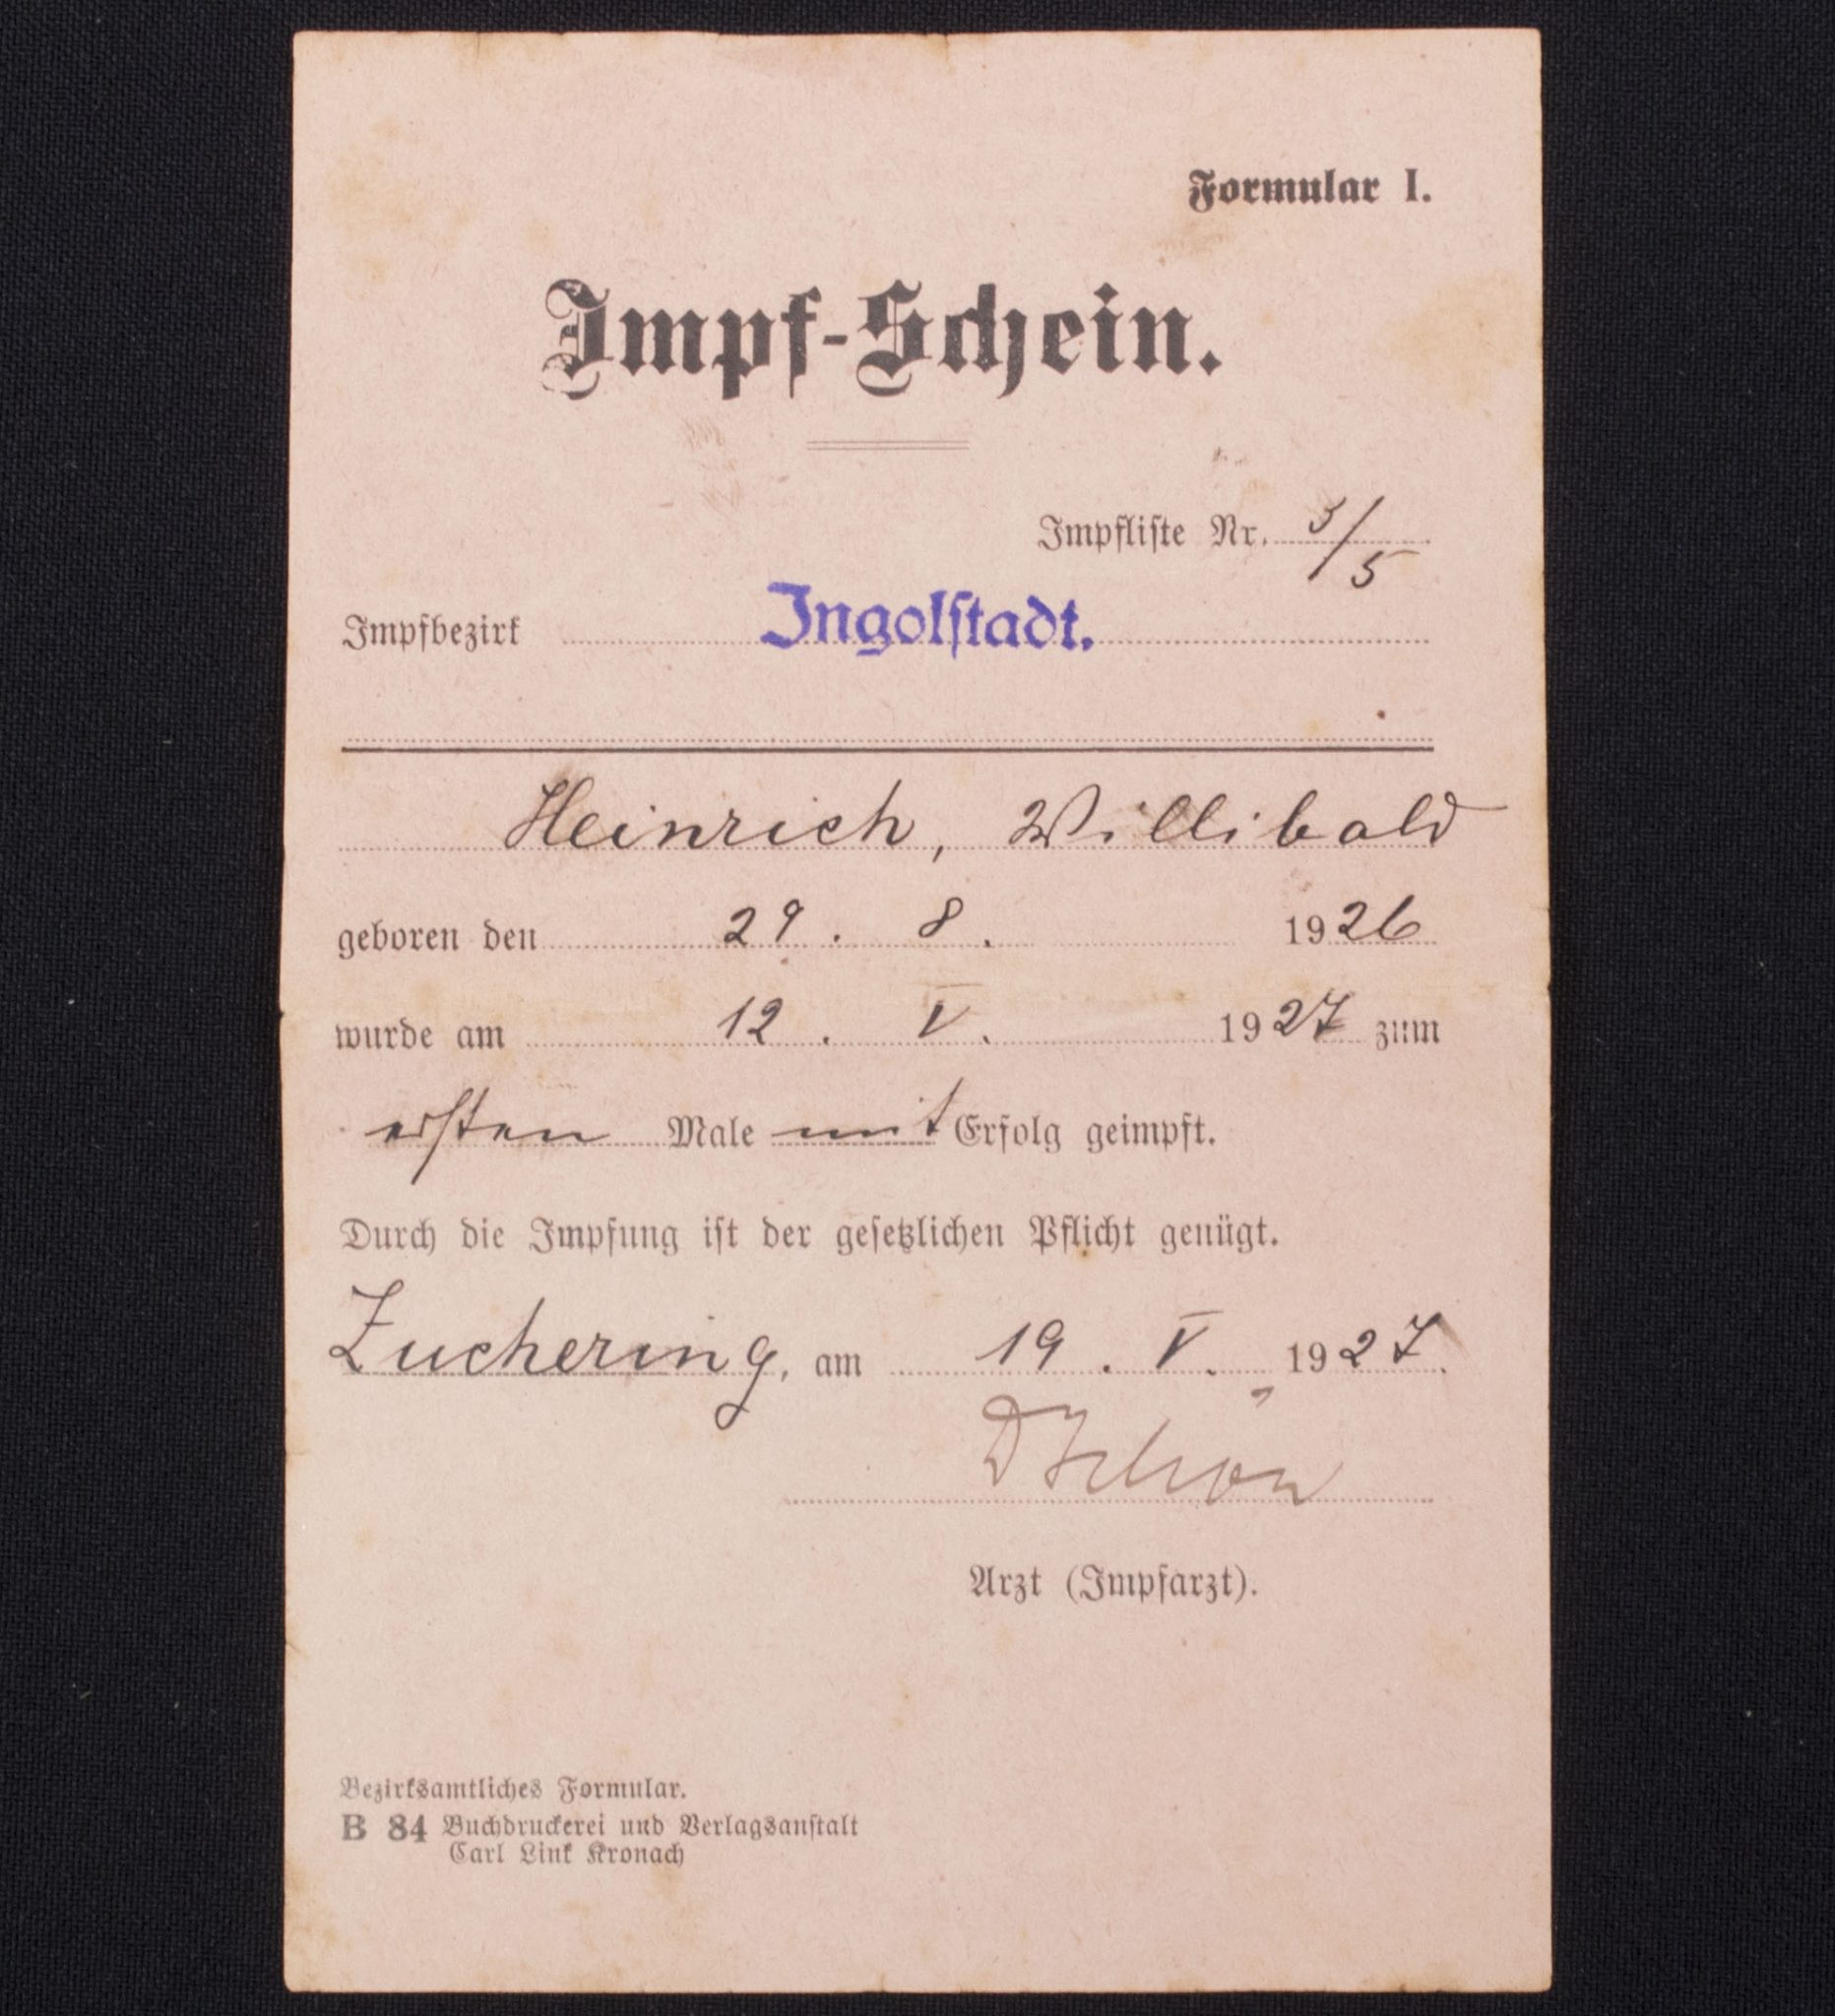 Formular I.
Impf-Schein.
Impfliste Nr. 3/5
Impfbezirk Ingolstadt.
Heinrich, Willibald
geboren den 29. 8. 1926
wurde am 12. V. 1927 zum
ersten Male mit Erfolg geimpft.
Durch die Impfung ist der gesetzlichen Pflicht genügt.
Zuchering, am 19. V. 1927.
Dr Schön
Arzt (Impfarzt).
Bezirksamtliches Formular.
B 84 Buchdruckerei und Verlagsanstalt
Carl Link Kronach